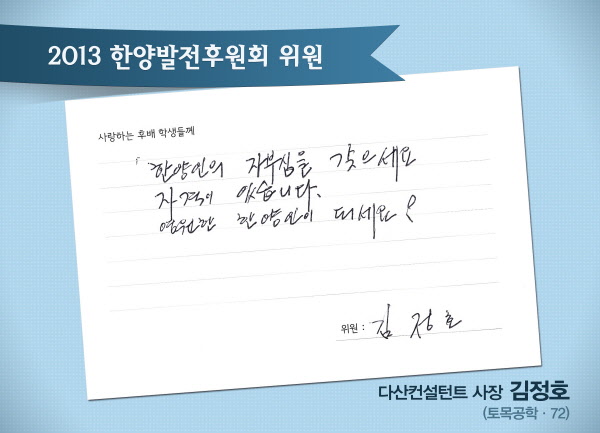 2013 한양발전후원회 위원
사랑하는 후배 학생들께
" 한양인의 자부심을 갖으세요
자격이 있습니다.
영원한 한양인이 되세요 !
위원 : 김 정 호
다산컨설턴트 사장 김정호
(토목공학 · 72)